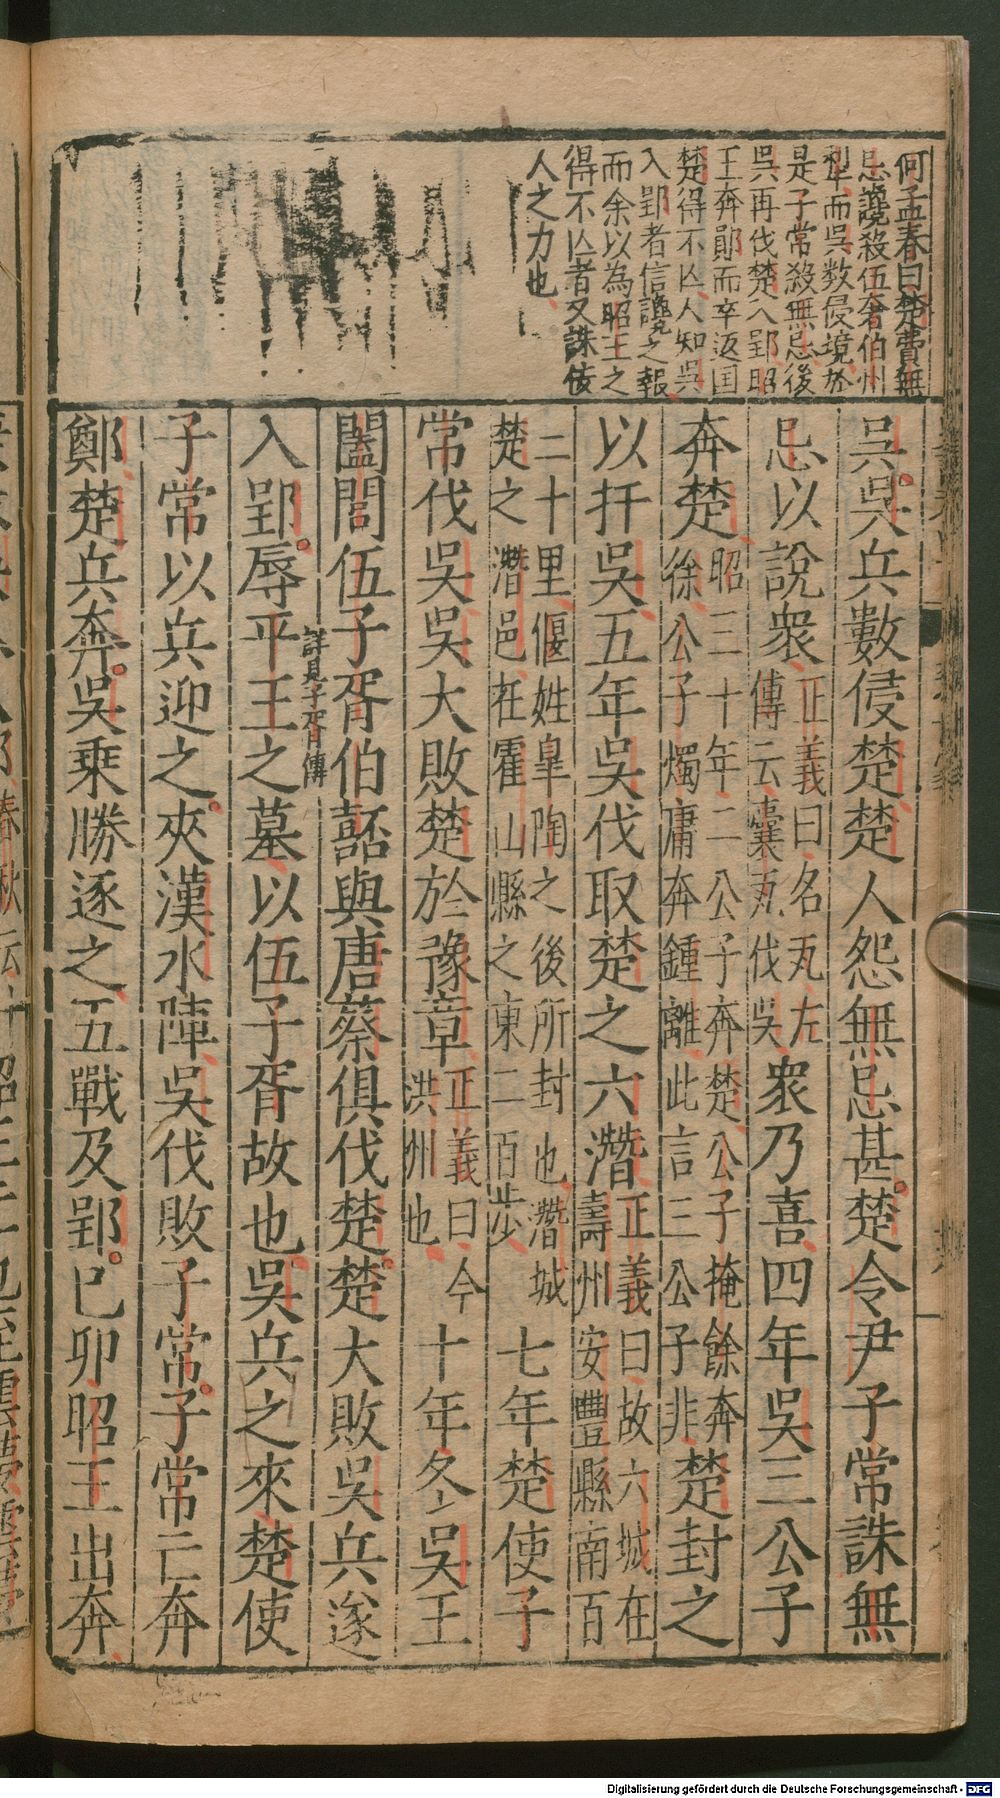 何孟春曰楚費無
忌讒殺伍奢伯州
犁而吳数侵境於
是子常殺無忌後
吳再伐楚入郢昭
王奔鄖而卒返国
楚得不亡人知吳
入郢者信讒之報
而余以為昭王之
得不亡者又誅佞
人之力也
吳吳兵數侵楚楚人怨無忌甚楚令尹子常誅無
忌以說衆
正義曰名瓦左
傳云囊瓦伐吳
衆乃喜四年吳三公子
奔楚
昭三十年二公子奔楚公子掩餘奔
徐公子燭庸奔鍾離此言三公子非
楚封之
以扞吳五年吳伐取楚之六潛
正義曰故六城在
壽州安豐縣南百
二十里偃姓皐陶之後所封也潛城
楚之潛邑在霍山縣之東二百步
七年楚使子
常伐吳吳大敗楚於豫章
正義曰今
洪州也
十年冬吳王
闔閭伍子胥伯嚭與唐蔡俱伐楚楚大敗吳兵遂
入郢辱平王之墓以伍子胥故也吳兵之來楚使
詳見子胥傳
子常以兵迎之夾漢水陣吳伐敗子常子常亡奔
鄭楚兵奔吳乘勝逐之五戰及郢巳卯昭王出奔
Digitalisierung gefördert durch die Deutsche Forschungsgemeinschaft - DFG